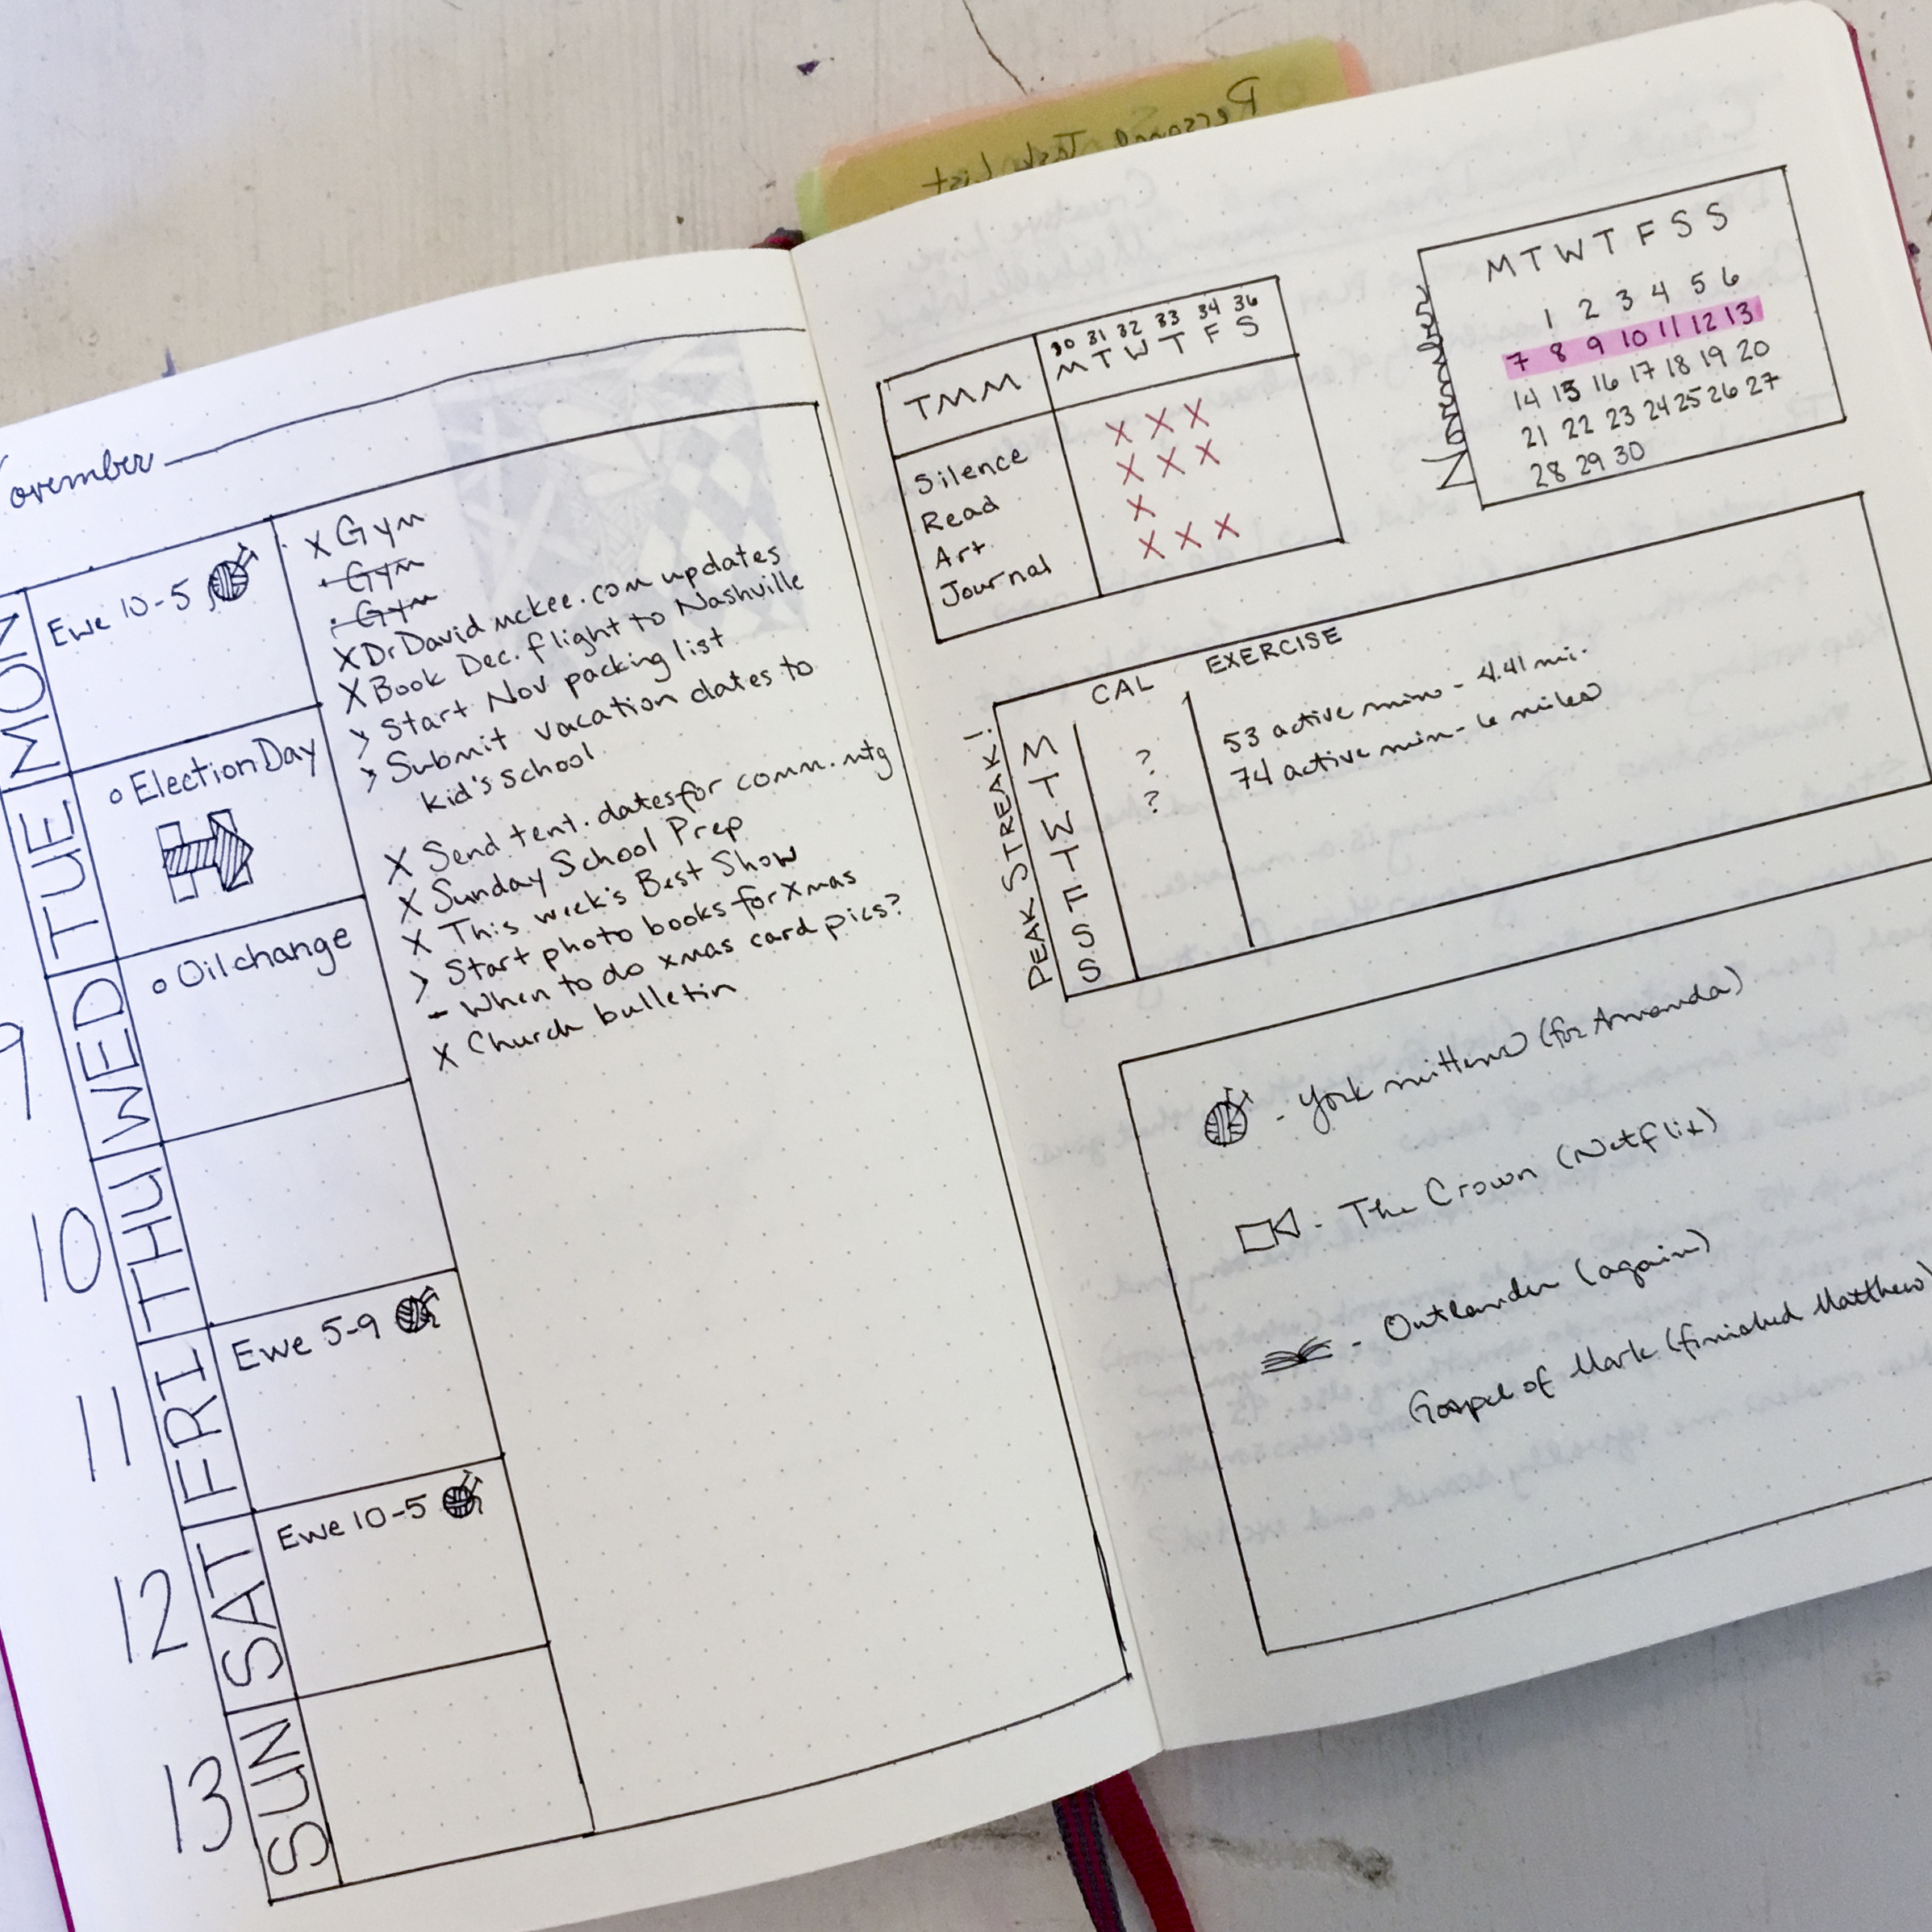 ovember
MON
Ewe 10-5
TUE
o Election Day
9
WED
o Oil change
10
THU
11
FRI
Ewe 5-9
12
SAT
Ewe 10-5
13
SUN
X Gym
· Gym
· Gym
X Dr David mckee.com updates
X Book Dec. flight to Nashville
> Start Nov packing list
> Submit vacation dates to
kid's school
X Send tent. dates for comm. mtg
X Sunday School Prep
X This week's Best Show
> Start photo books for xmas
- When to do xmas card pics?
X Church bulletin
Personal Task List
TMM
30 31 32 33 34 36
M T W T F S
Silence X X X
Read X X X
Art X
Journal X X X
November
M T W T F S S
1 2 3 4 5 6
7 8 9 10 11 12 13
14 15 16 17 18 19 20
21 22 23 24 25 26 27
28 29 30
PEAK STREAK!
CAL EXERCISE
M ? 53 active min - 4.41 mi.
T ? 74 active min - 6 miles
W
T
F
S
S
- York mittens (for Amanda)
- The Crown (Netflix)
- Outlander (again)
Gospel of Mark (finished Matthew)